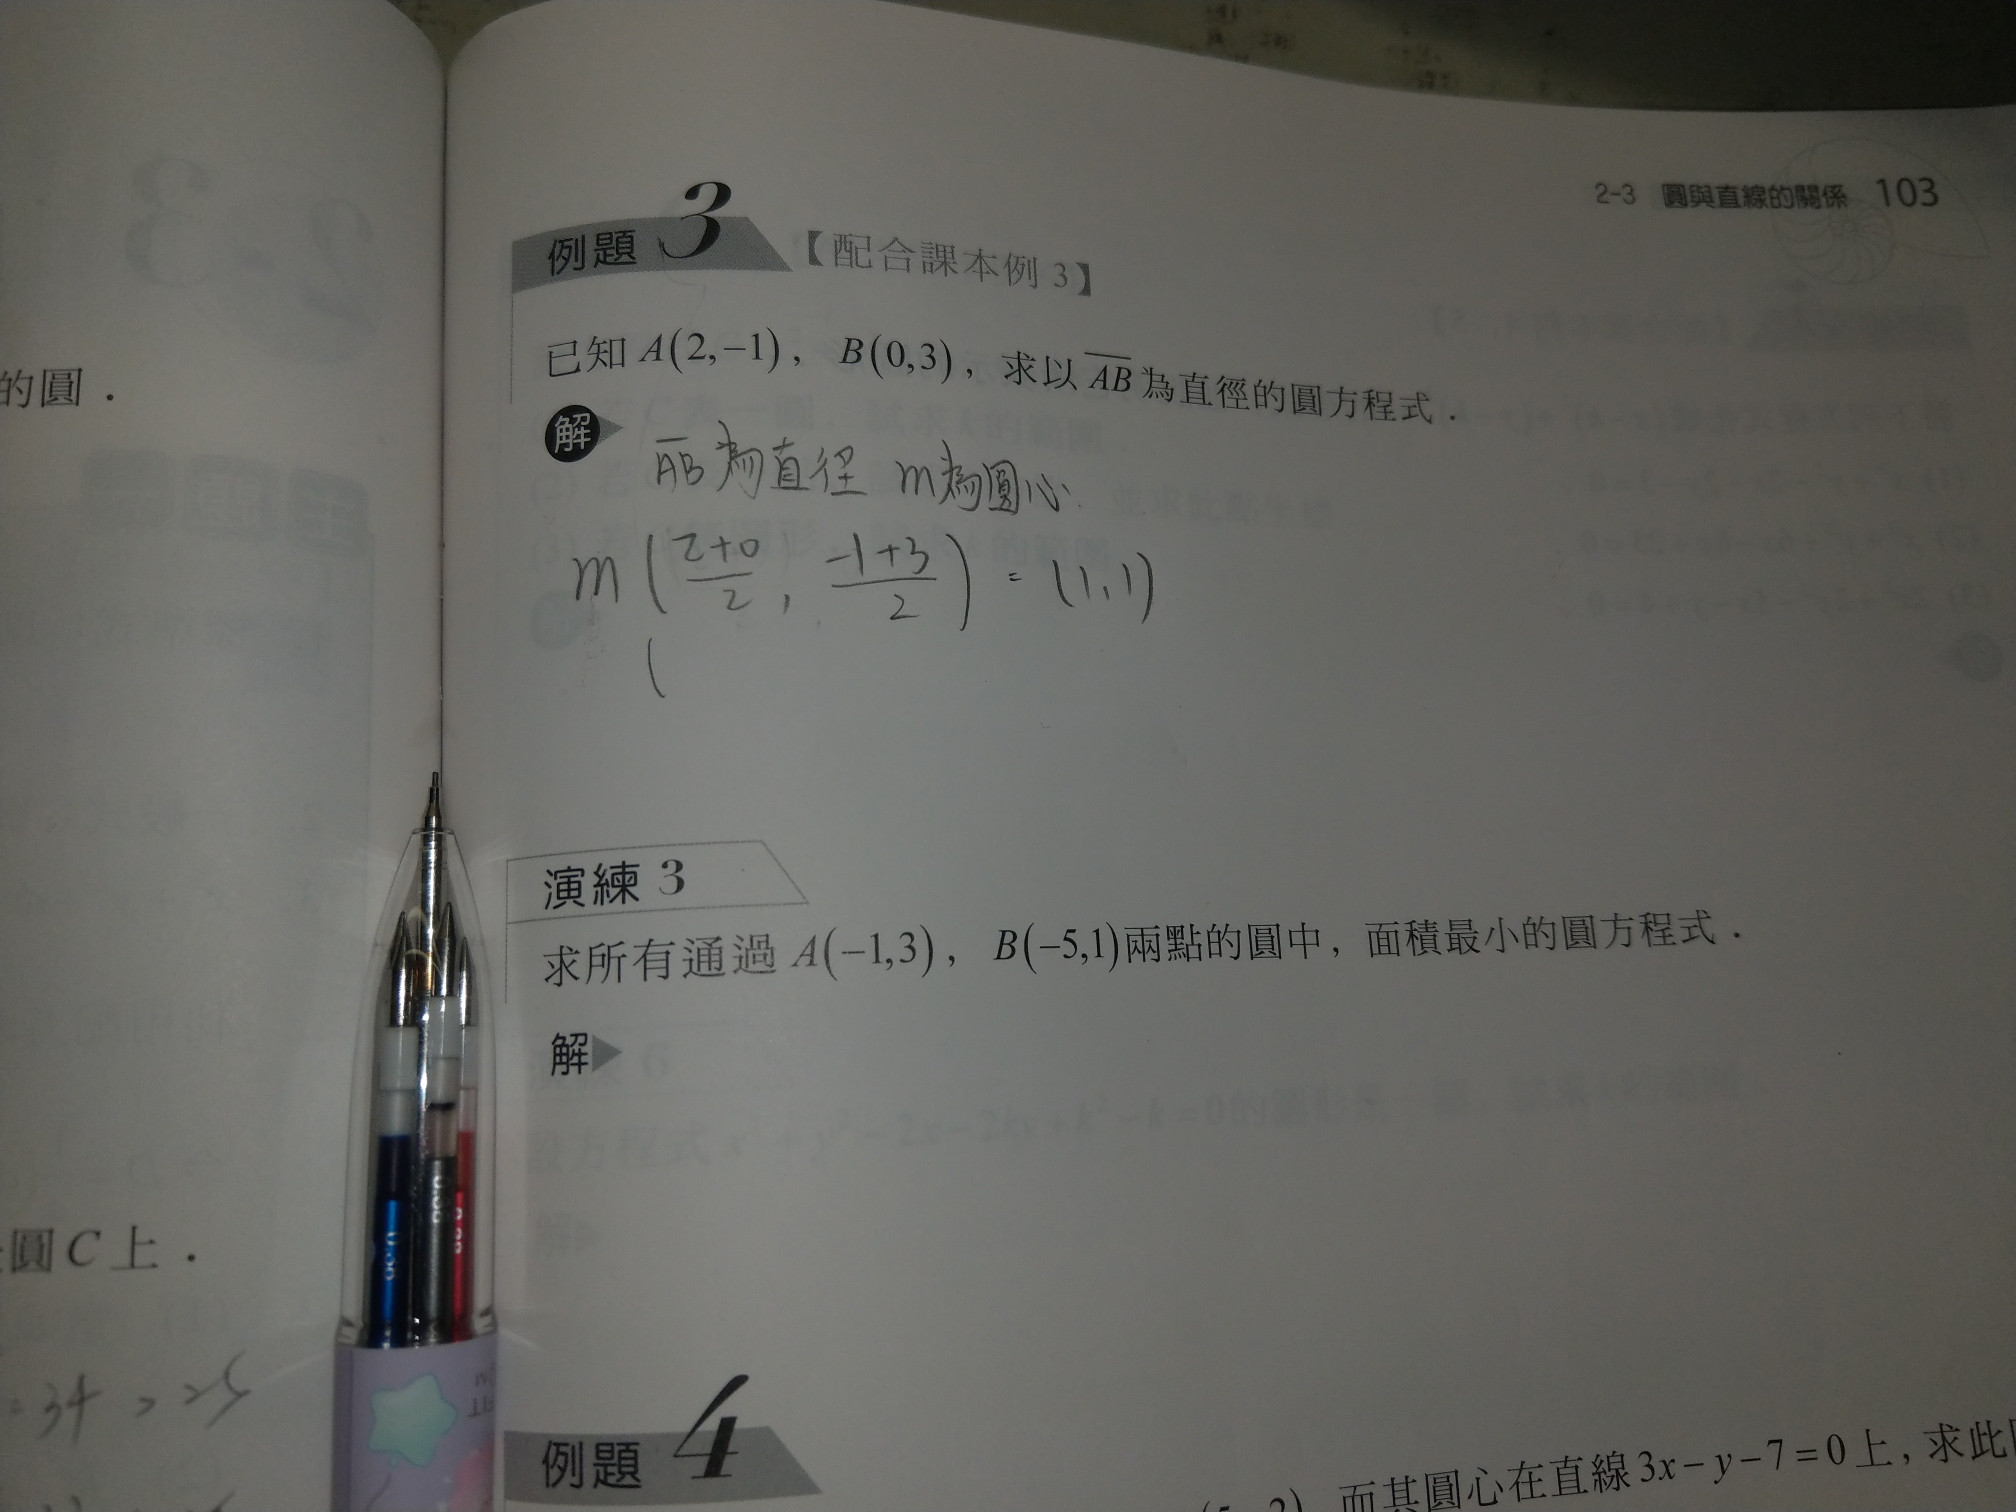 2-3 圓與直線的關係 103
的圓．
例題 3 【配合課本例 3】
已知 A(2,−1)， B(0,3)，求以 \overline{AB} 為直徑的圓方程式．
解
\overline{AB} 為直徑 m為圓心
m(\frac{2+0}{2}, \frac{-1+3}{2}) = (1,1)
(
演練 3
求所有通過 A(−1,3)， B(−5,1)兩點的圓中，面積最小的圓方程式．
解
圓 C 上．
=34 > 25
例題 4
而其圓心在直線 3x−y−7=0 上，求此